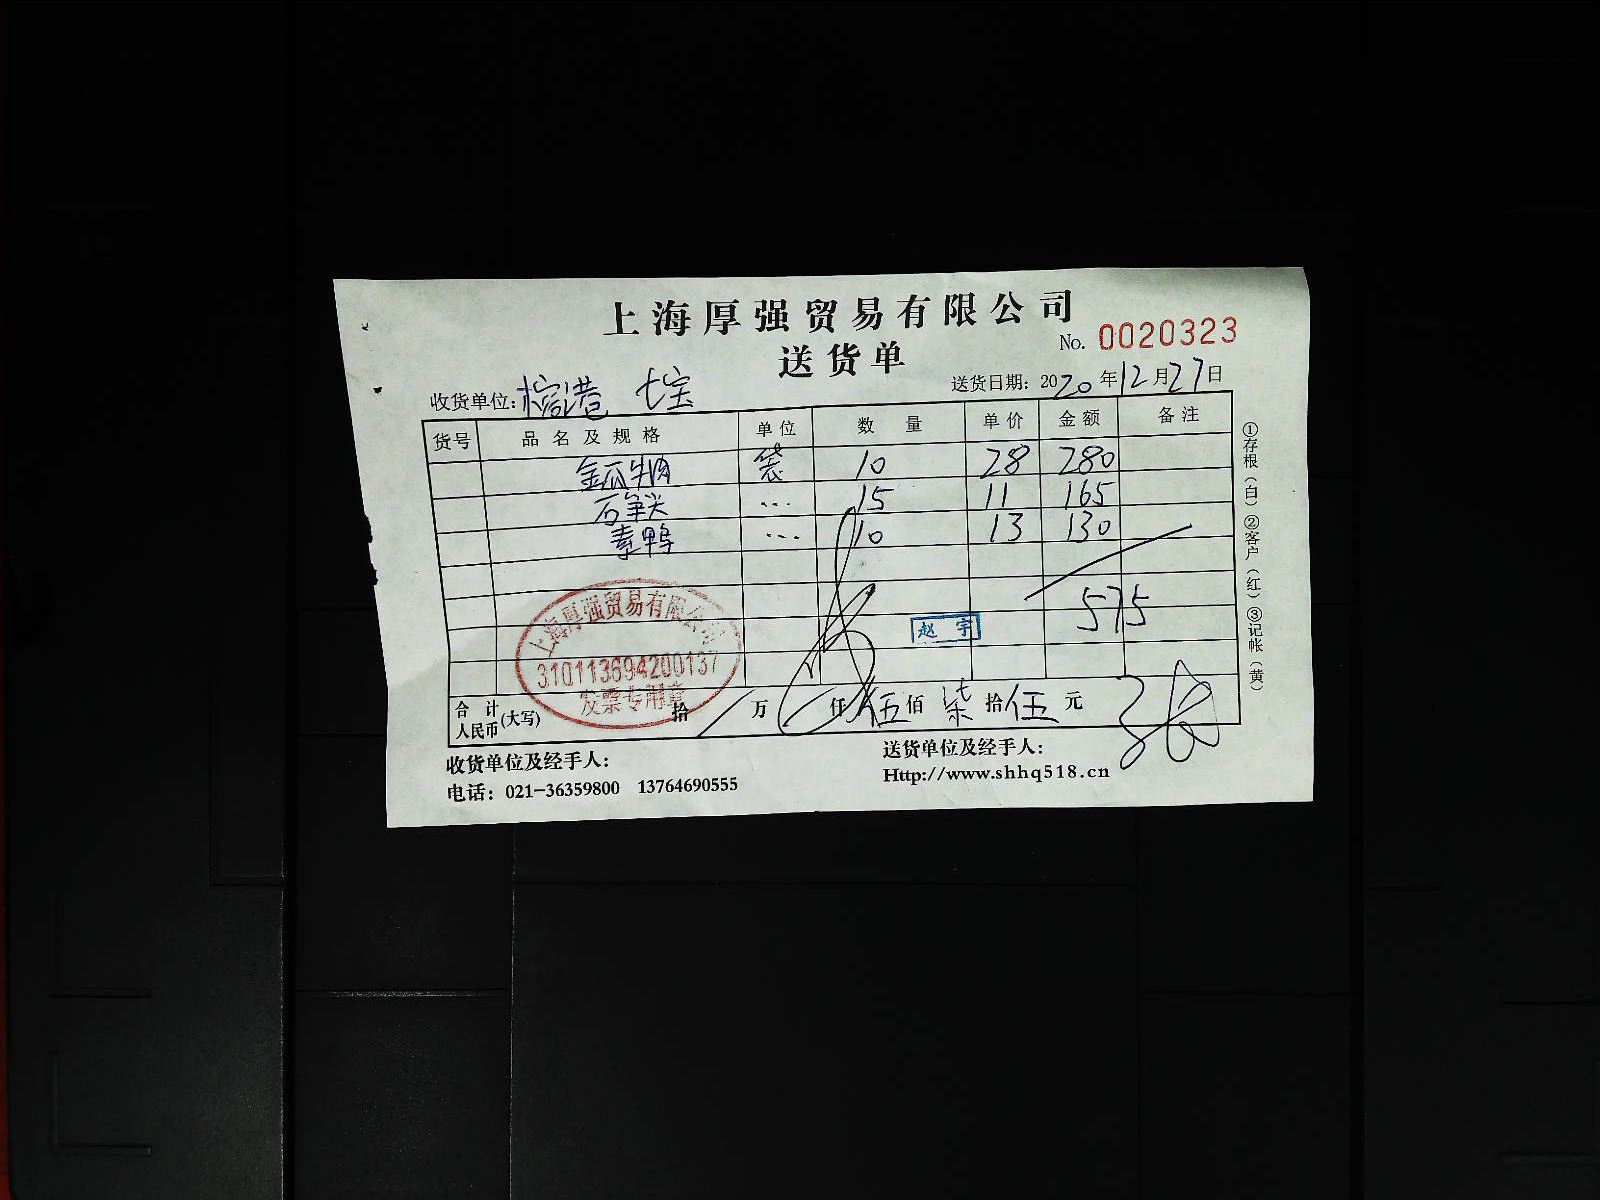 上海厚强贸易有限公司
送货单
No. 0020323
收货单位: 榕港 七宝
送货日期: 2020年12月27日
货号 品名及规格 单位 数量 单价 金额 备注
金瓜牛肉 袋 10 28 280
石笋尖 ... 15 11 165
素鸭 ... 10 13 130
575
赵宇
上海厚强贸易有限公司
310113694200137
发票专用章
合计人民币(大写) 拾 万 仟 伍佰 柒拾 伍元
收货单位及经手人:
送货单位及经手人:
电话: 021-36359800 13764690555
Http://www.shhq518.cn
①存根(白) ②客户(红) ③记帐(黄)